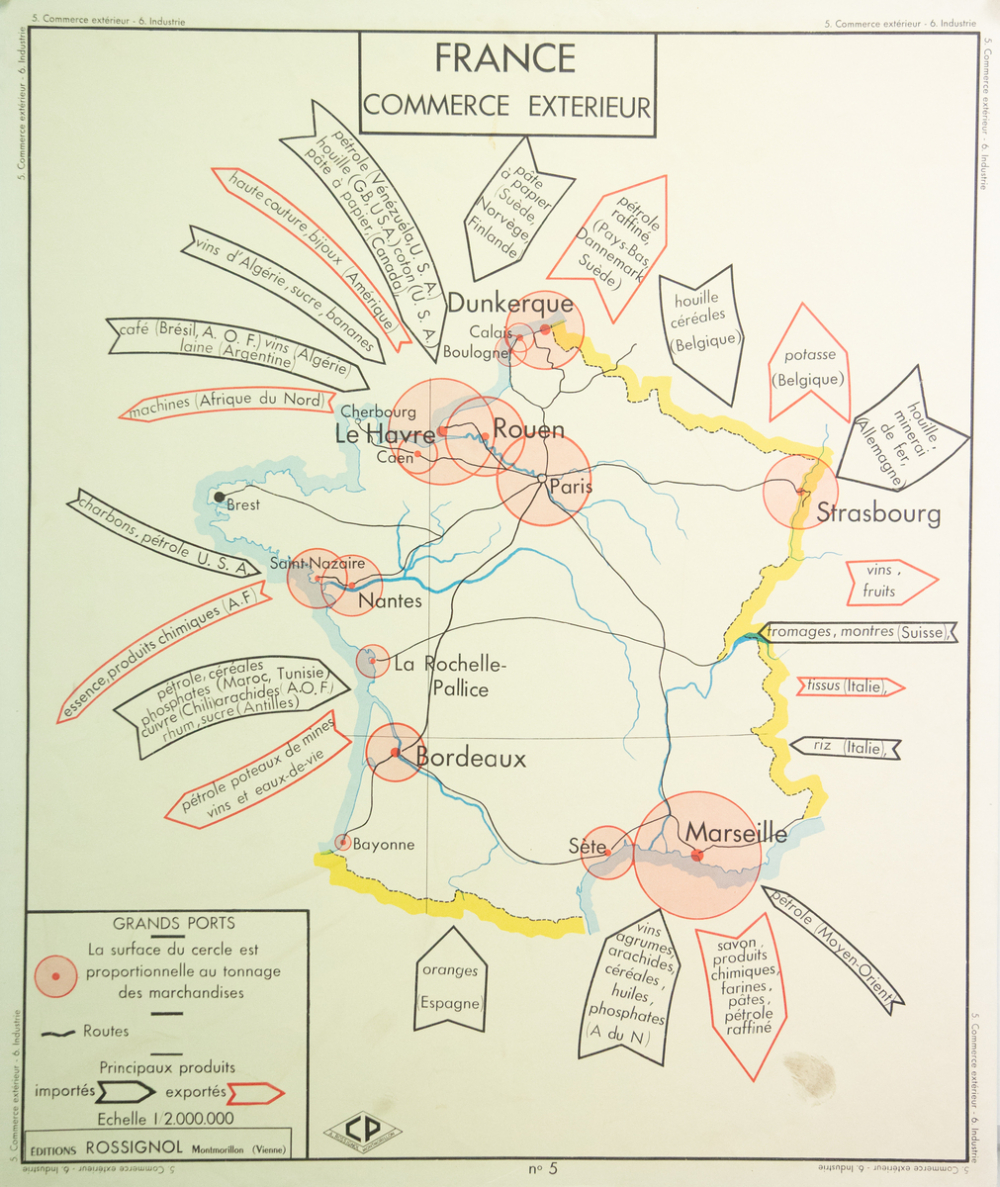 5. Commerce extérieur - 6. Industrie
5. Commerce extérieur - 6. Industrie
5. Commerce extérieur - 6. Industrie
5. Commerce extérieur - 6. Industrie
FRANCE
COMMERCE EXTERIEUR
pétrole (Vénézuéla, U. S. A.)
houille (G.B, U.S.A.) coton (U. S. A.)
pâte à papier, (Canada),
haute couture, bijoux (Amérique)
vins d'Algérie, sucre, bananes
café (Brésil, A. O. F.) vins (Algérie)
laine (Argentine)
machines (Afrique du Nord)
pâte
à papier
(Suède,
Norvège,
Finlande)
pétrole
raffiné,
(Pays-Bas,
Dannemark
Suède)
houille
céréales
(Belgique)
potasse
(Belgique)
houille,
minerai
de fer,
(Allemagne)
Dunkerque
Calais
Boulogne
Cherbourg
Le Havre
Rouen
Caen
Paris
Brest
Strasbourg
charbons, pétrole U. S. A.
Saint-Nazaire
Nantes
vins,
fruits
essence, produits chimiques (A.F)
fromages, montres (Suisse),
La Rochelle-
Pallice
pétrole, céréales
phosphates (Maroc, Tunisie)
cuivre (Chili) arachides (A.O.F)
rhum, sucre (Antilles)
tissus (Italie),
riz (Italie),
pétrole poteaux de mines
vins et eaux-de-vie
Bordeaux
Bayonne
Sète
Marseille
pétrole (Moyen-Orient)
oranges
(Espagne)
vins
agrumes,
arachides,
céréales,
huiles,
phosphates
(A du N)
savon,
produits
chimiques,
farines,
pâtes,
pétrole
raffiné
GRANDS PORTS
La surface du cercle est
proportionnelle au tonnage
des marchandises
Routes
Principaux produits
importés
exportés
Echelle 1/2.000.000
ÉDITIONS ROSSIGNOL Montmorillon (Vienne)
CP
nº 5
5. Commerce extérieur - 6. Industrie
5. Commerce extérieur - 6. Industrie
5. Commerce extérieur - 6. Industrie
5. Commerce extérieur - 6. Industrie